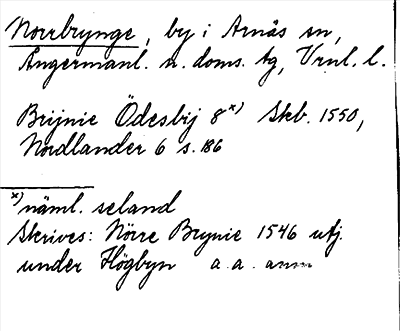 Norrbrynge, by i Arnäs sn,
Ångermanl. n. doms. tg, Vrnl. l.
Brijnie Ödesbij 8 x) Skb. 1550,
Nordlander 6 s. 186
x) näml. seland
Skrives: Nörre Brynie 1546 utj.
under Högbyn a. a. anm